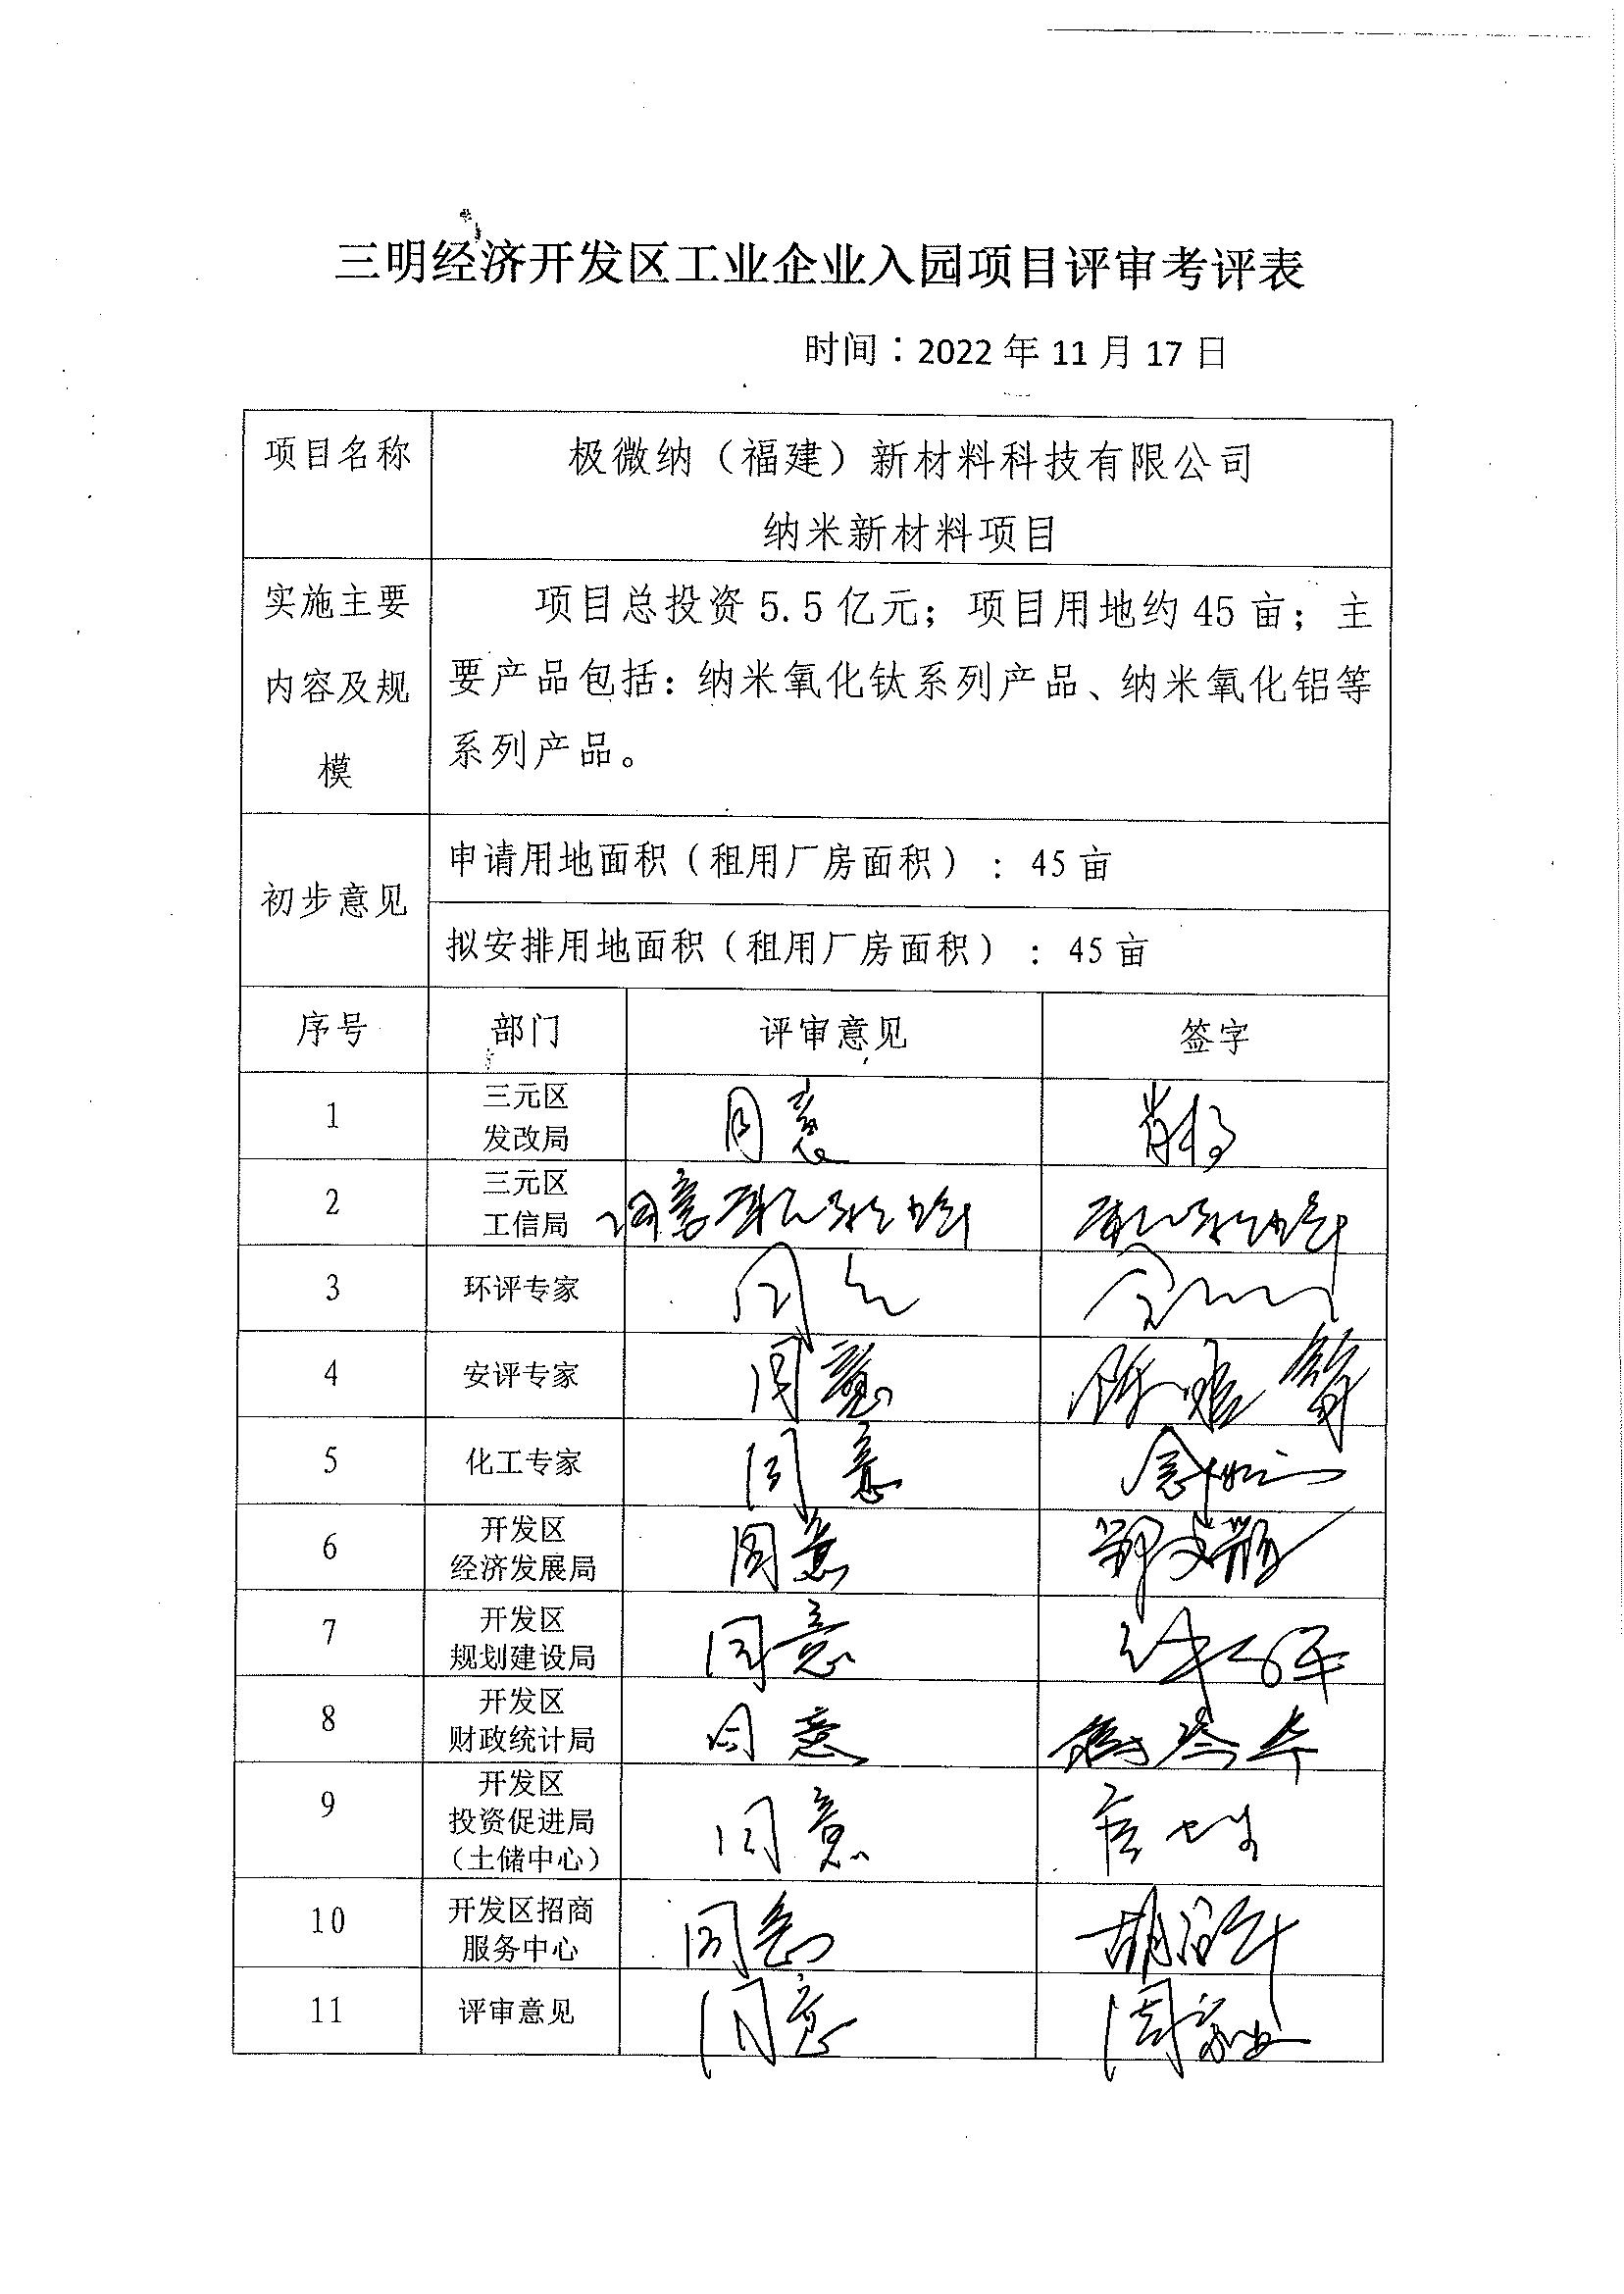 三明经济开发区工业企业入园项目评审考评表
时间：2022年11月17日
项目名称
极微纳（福建）新材料科技有限公司
纳米新材料项目
实施主要
内容及规
模
项目总投资5.5亿元；项目用地约45亩；主
要产品包括：纳米氧化钛系列产品、纳米氧化铝等
系列产品。
初步意见
申请用地面积（租用厂房面积）：45亩
拟安排用地面积（租用厂房面积）：45亩
序号 部门 评审意见 签字
1 三元区
发改局 同意
2 三元区
工信局 同意
3 环评专家 同意
4 安评专家 同意
5 化工专家 同意
6 开发区
经济发展局 同意
7 开发区
规划建设局 同意
8 开发区
财政统计局 同意
9 开发区
投资促进局
（土储中心） 同意
10 开发区招商
服务中心 同意
11 评审意见 同意